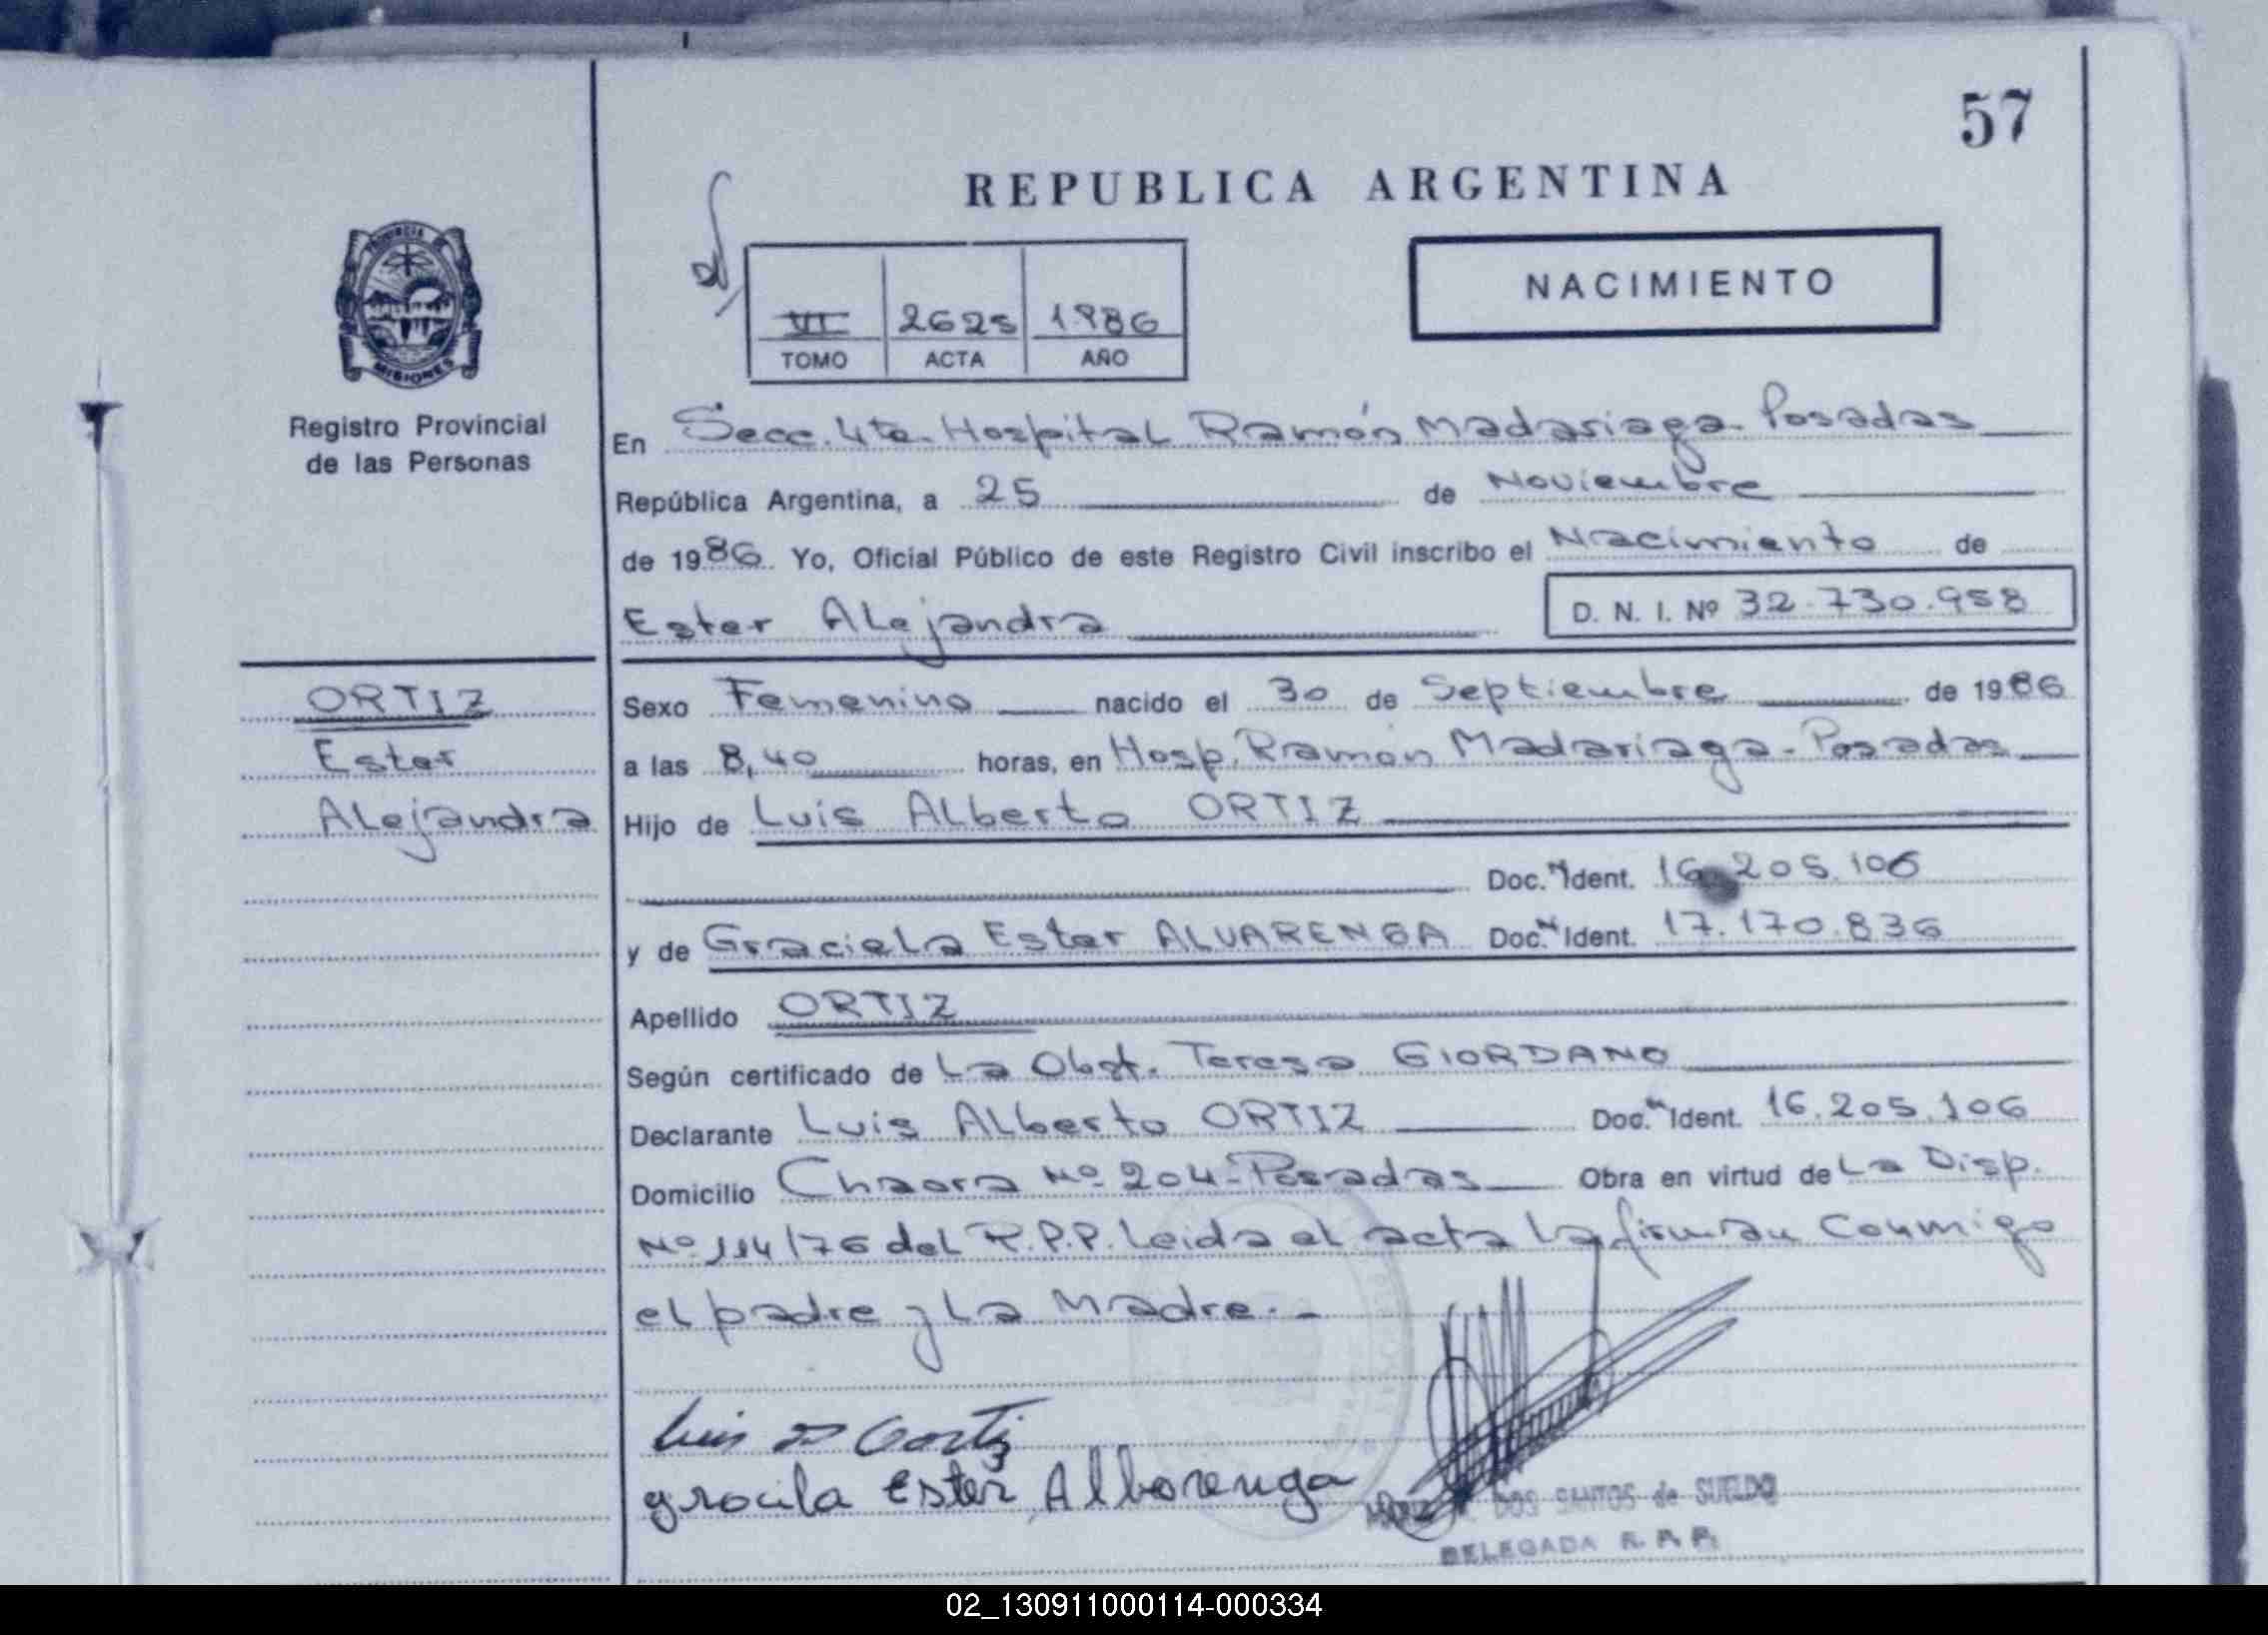 57
REPUBLICA ARGENTINA
NACIMIENTO
VI 2625 1986
TOMO ACTA AÑO
PROVINCIA DE
MISIONES
Registro Provincial
de las Personas
En Secc. 4ta. Hospital Ramón Madariaga Posadas
República Argentina, a 25 de Noviembre
de 1986. Yo, Oficial Público de este Registro Civil inscribo el Nacimiento de
Ester Alejandra D. N. I. Nº 32.730.958
ORTIZ
Ester
Alejandra
Sexo Femenino nacido el 30 de Septiembre de 1986
a las 8,40 horas, en Hosp. Ramon Madariaga - Posadas
Hijo de Luis Alberto ORTIZ
Doc. N Ident. 16.205.106
y de Graciela Ester ALVARENGA Doc. N Ident. 17.170.836
Apellido ORTIZ
Según certificado de La Obst. Teresa GIORDANO
Declarante Luis Alberto ORTIZ Doc. N Ident. 16.205.106
Domicilio Chacra Nº 204 - Posadas Obra en virtud de La Disp.
Nº 114/76 del R.P.P. Leida el acta La firman Conmigo
el padre y La Madre. -
Luis Ortiz
graciela Ester Alborenga
DOS SANTOS de SUELDO
DELEGADA R. P. P.
02_130911000114-000334